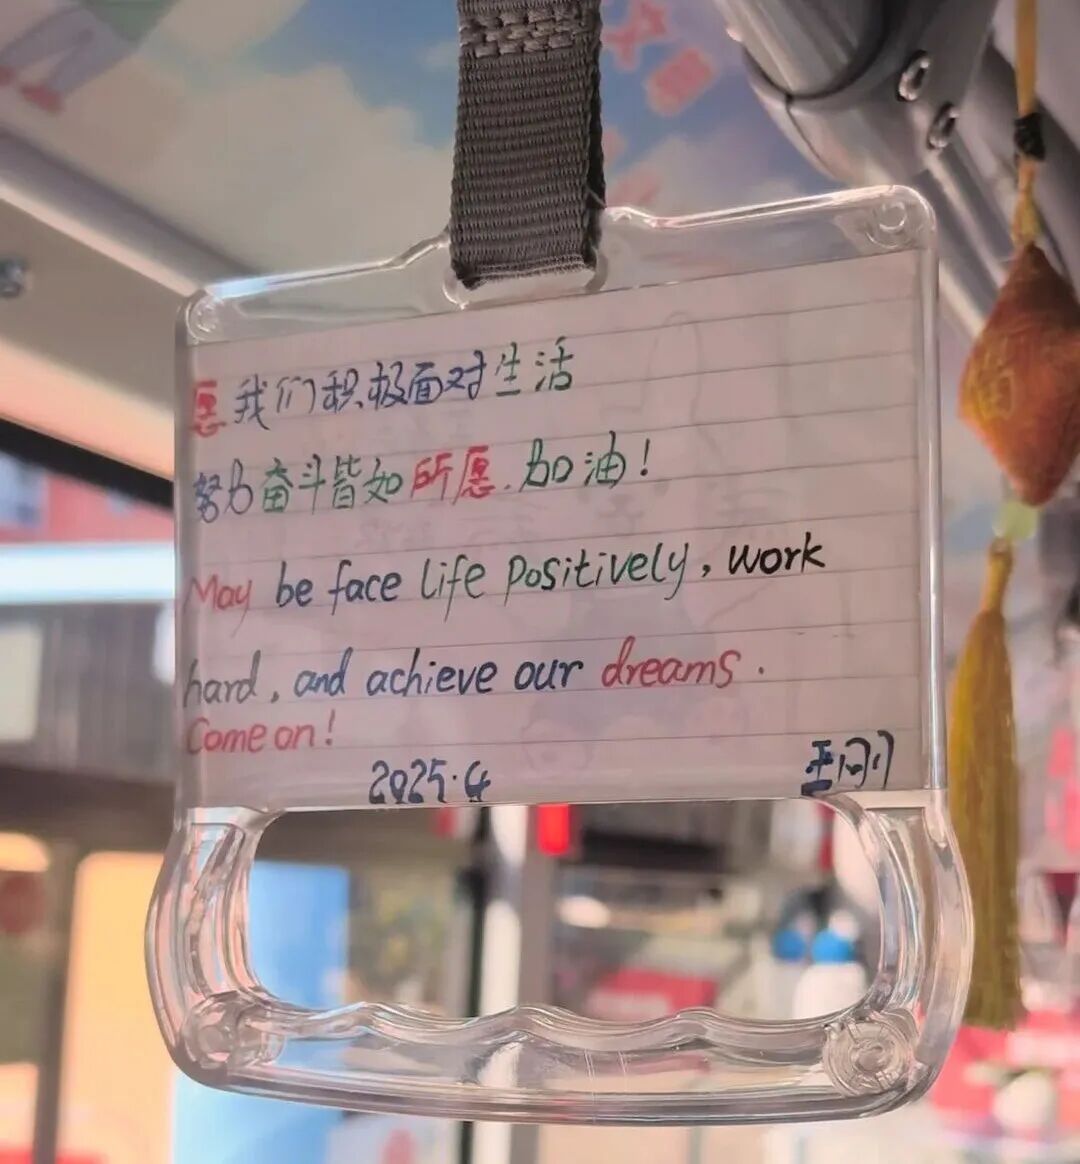 愿我们积极面对生活
努力奋斗皆如所愿.加油!
May be face life positively, work
hard, and achieve our dreams.
Come on!
2025.4 王刚